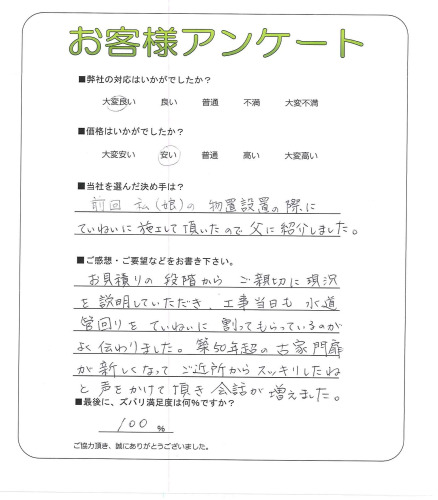 お客様アンケート
■弊社の対応はいかがでしたか？
大変良い　良い　普通　不満　大変不満
■価格はいかがでしたか？
大変安い　安い　普通　高い　大変高い
■当社を選んだ決め手は？
前回 私(娘)の 物置設置の 際に
ていねいに 施工して 頂いたので 父に 紹介しました。
■ご感想・ご要望などをお書き下さい。
お見積りの 段階から ご親切に 現況
を 説明していただき、工事当日も 水道
管回りを ていねいに 割ってもらっているのが
よく 伝わりました。築50年超の 古家 門扉
が 新しくなって ご近所から スッキリしたね
と 声をかけて 頂き 会話が 増えました。
■最後に、ズバリ満足度は何％ですか？
100 ％
ご協力頂き、誠にありがとうございました。